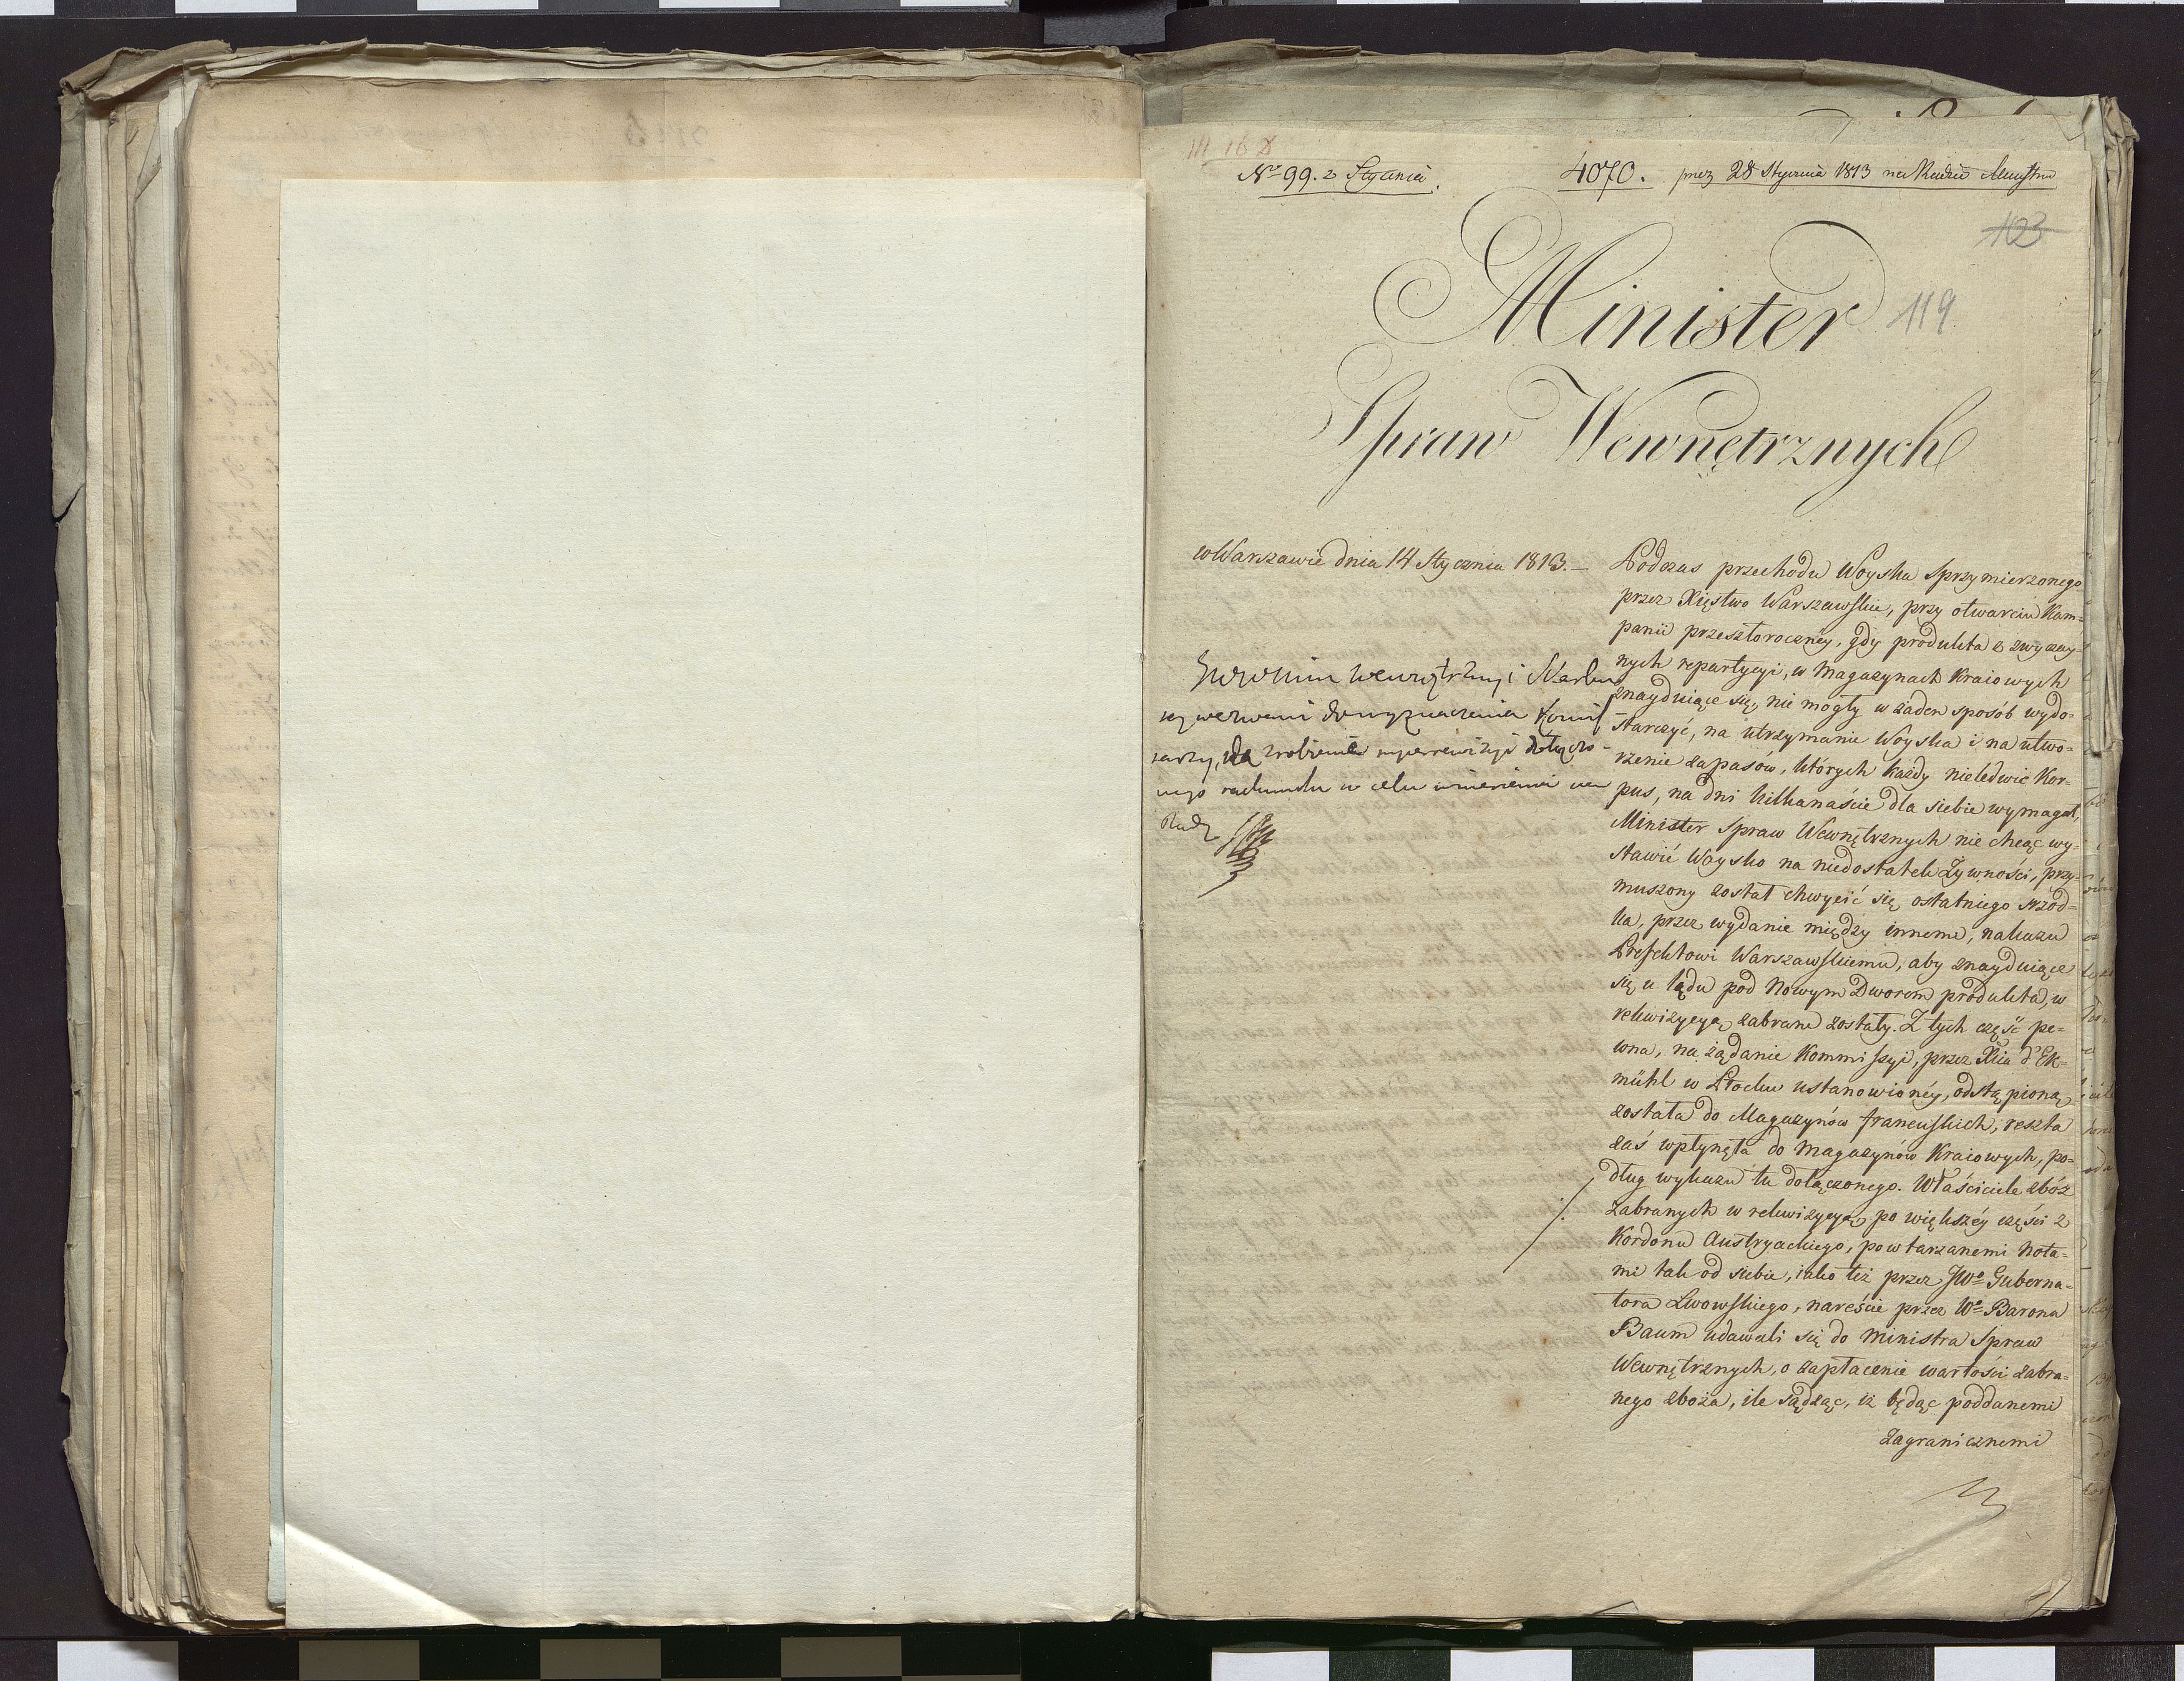 III 16 8
Nro 99. z Stycznia.
4070. prez 28 Stycznia 1813 na Radzie Ministrów
103
Minister
119
Spraw Wewnętrznych
w Warszawie dnia 14 Stycznia 1813. —
Podczas przechodu Woyska Sprzymierzonego
przez Xięstwo Warszawskie, przy otwarciu Kam=
panii przeszłoroczney, gdy produkta z zwyczay=
nych repartycyi, w Magazynach Kraiowych
znayduiące się, nie mogły w żaden sposób wydo=
starczyć, na utrzymanie Woyska i na utwo=
rzenie zapasów, których każdy nieledwie Kor=
pus, na dni kilkanaście dla siebie wymagał,
Minister Spraw Wewnętrznych nie chcąc wy=
stawić Woysko na niedostatek Żywności, przy=
muszony został chwycić się ostatniego srzod=
ka, przez wydanie między innemi, nakazu
Prefektowi Warszawskiemu, aby znayduiące
się u lądu pod Nowym Dworem produkta, w
rekwizycyą zabrane zostały. Z tych część pe=
wna, na żądanie Kommissyi, przez Xcia d'Ek=
mühl w Płocku ustanowioney, odstąpioną
została do Magazynów francuskich, reszta
zaś wpłynęła do Magazynów Kraiowych, po=
dług wykazu tu dołączonego. Właściciele zbóż
zabranych w rekwizycyą po większéy części z
Kordonu Austryackiego, powtarzanemi Nota=
mi tak od siebie, iako też przez JWo Guberna=
tora Lwowskiego, nareście przez Wo Barona
Baum udawali się do Ministra Spraw
Wewnętrznych, o zapłacenie wartości zabra=
nego zboża, ile sądząc, iż będąc poddanemi
Zagranicznemi
wewnętrzny i Skarbu
są wezwani do wyznaczenia Komis
sarzy, dla zrobienia superrewizyi dotyczą-
cego rachunku w celu wniesienia na
Radę